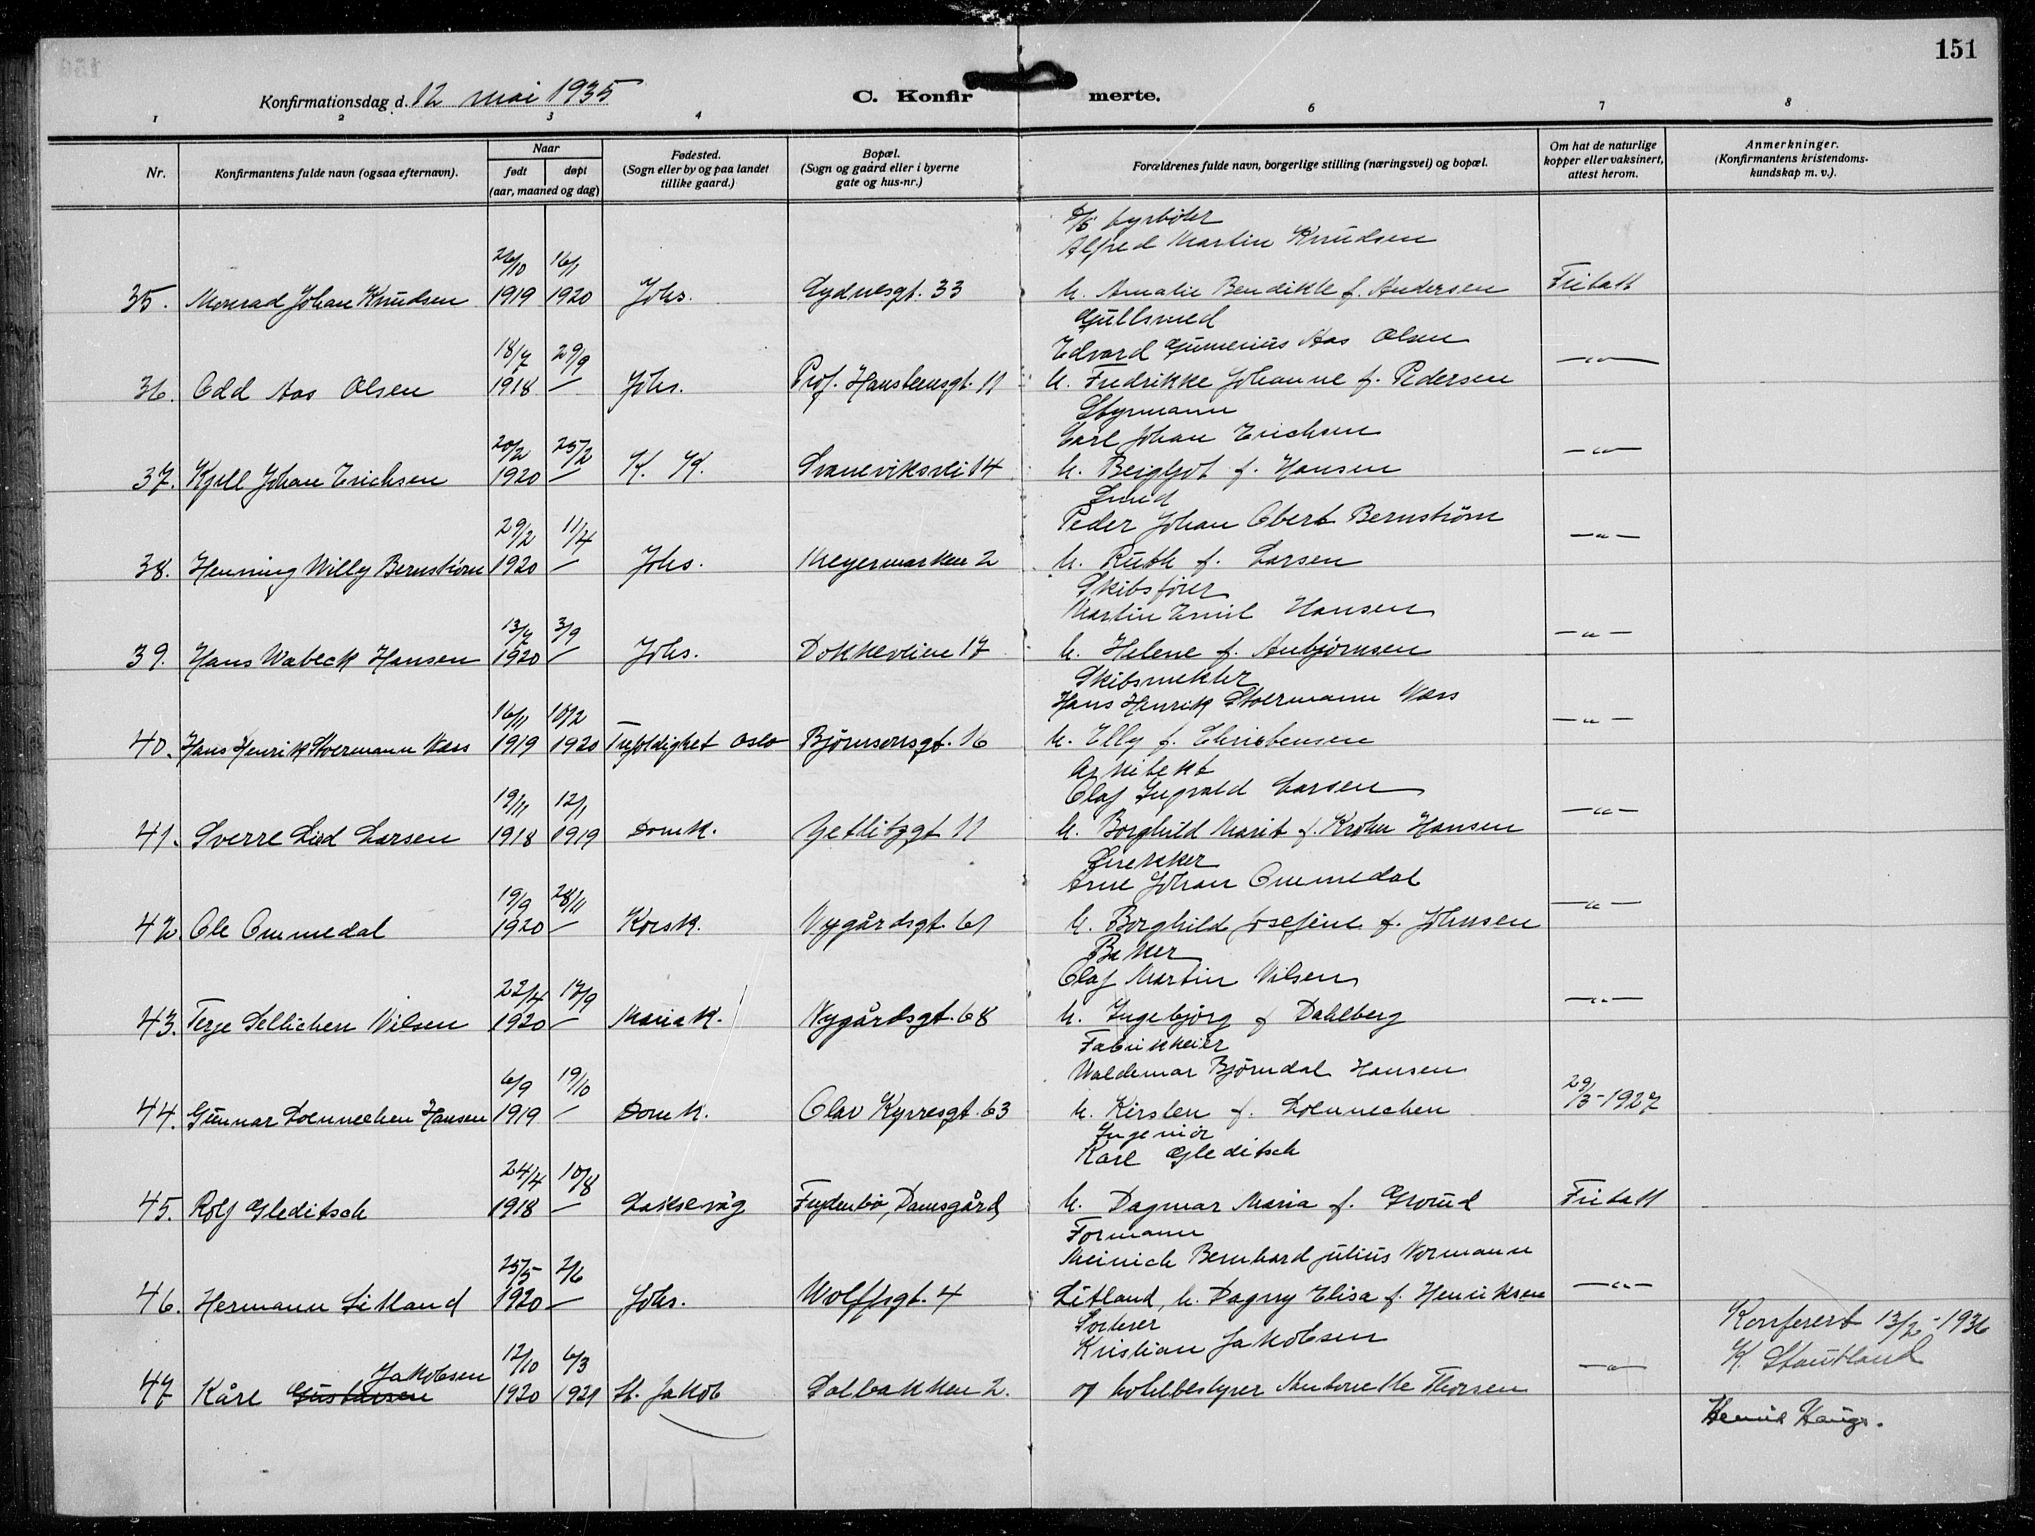 151
Konfirmationsdag d. 12 mai 1935
C. Konfirmerte.
1 2 3 4 5 6 7 8
Nr.
Konfirmantens fulde navn (ogsaa efternavn).
Naar
født døpt
(aar, maaned og dag)
Fødested.
(Sogn eller by og paa landet
tillike gaard.)
Bopæl.
(Sogn og gaard eller i byerne
gate og hus-nr.)
Forældrenes fulde navn, borgerlige stilling (næringsvei) og bopæl.
Om hat de naturlige
kopper eller vaksinert,
attest herom.
Anmerkninger.
(Konfirmantens kristendoms-
kundskap m. v.).
fyrbøter
Alfred Martin Knudsen
26/10 16/1
35. Monrad Johan Knudsen 1919 1920 Johs. Sydnesgt. 33 h. Amalie Bendikte f. Andersen Fritatt
Gullsmed
Edvard Gumerius Aas Olsen
18/7 29/9
36. Odd Aas Olsen 1918 — Johs. Prof. Hansteensgt. 11 h. Fredrikke Johanne f. Pedersen —"—
Styrmann
Carl Johan Erichsen
20/2 25/2
37. Kjell Johan Erichsen 1920 — K. K. Svaneviksvei 14 h. Bergljot f. Hansen —"—
Smed
Peder Johan Obert Bernstrøm
29/2 11/4
38. Henning Willy Bernstrøm 1920 — Johs. Meyermarken 2 h. Ruth f. Larsen —"—
Skibsfører
Martin Emil Hansen
13/7 3/9
39. Hans Wabeck Hansen 1920 — Johs. Dokkeveien 17 h. Helene f. Anbjørnsen —"—
Skibsmekler
Hans Henrik Stoermann Næss
16/11 10/2
40. Hans Henrik Stoermann Næss 1919 1920 Trefoldighet Oslo Bjørnsonsgt. 16 h. Elly f. Christensen —"—
Arkitekt
Olaf Ingvald Larsen
19/11 12/1
41. Sverre Lied Larsen 1918 1919 Domk. Gerlitzgt 11 h. Borghild Marit f. Krohn Hansen —"—
Snekker
Arne Johan Ommedal
19/9 28/11
42. Ole Ommedal 1920 — Korsk. Nygårdsgt. 61 h. Borghild Josefine f. Johnsen —"—
Baker
Olaf Martin Nilsen
22/4 17/9
43. Terje Sellichen Nilsen 1920 — Mariak. Nygårdsgt. 68 h. Ingebjørg f Dahlberg —"—
Fabrikkeier
Waldemar Bjørndal Hansen
6/9 19/10
44. Gunnar Loennechen Hansen 1919 — Domk. Olav Kyrresgt. 63 h. Kirsten f. Loennechen 29/3-1927
Ingeniør
Karl Gleditsch
24/4 10/8
45. Rolf Gleditsch 1918 — Laksevåg Frydenbø, Damsgård h. Dagmar Maria f. Grønd Fritatt
Formann
Meinich Bernhard Julius Normann
25/5 2/6
46. Hermann Litland 1920 — Johs. Wolffsgt. 4 Litland, h. Dagny Elisa f. Henriksen —"—
Sorterer
Kristian Jakobsen
Konferert 13/2-1936
K. Stautland
Jakobsen 12/10 6/3
47 Kåre Gustavsen 1920 1921 St. Jakob Solbakken 2. og hotelbestyrer Antonette Thorsen —"—
Haugs.